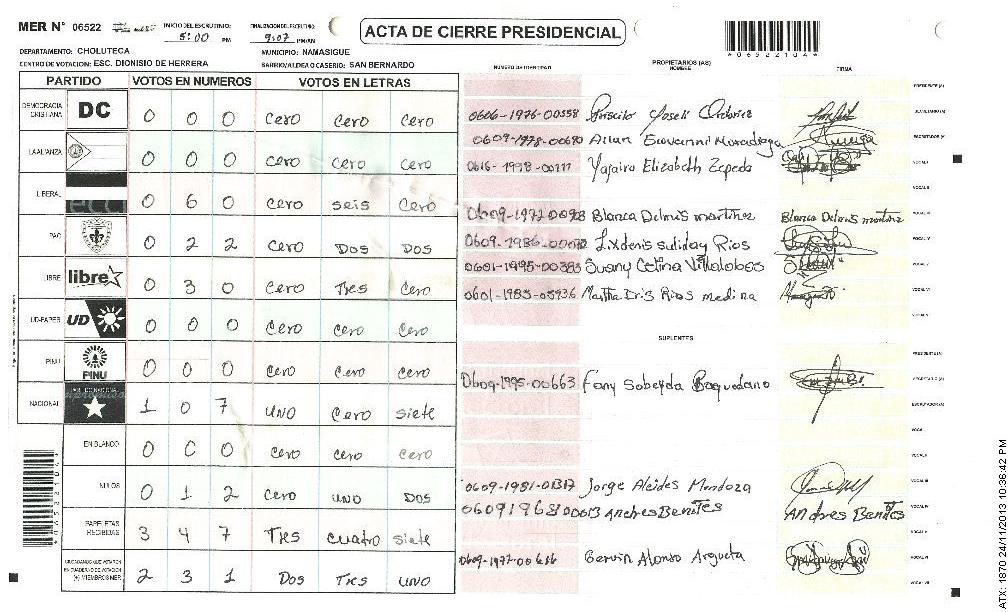 MER N° 06522 INICIO DEL ESCRUTINIO: 5:00 PM FINALIZACION DEL ESCRUTINIO 9:07 PM/AM ACTA DE CIERRE PRESIDENCIAL
*06522104*
DEPARTAMENTO: CHOLUTECA MUNICIPIO: NAMASIGUE
CENTRO DE VOTACION: ESC. DIONISIO DE HERRERA BARRIO/ALDEA O CASERIO: SAN BERNARDO
PARTIDO VOTOS EN NUMEROS VOTOS EN LETRAS
DEMOCRACIA CRISTIANA DC 0 0 0 cero cero cero
LA ALIANZA 0 0 0 cero cero cero
LIBERAL 0 6 0 cero seis cero
PAC 0 2 2 cero Dos Dos
LIBRE libre 0 3 0 cero Tres cero
UD-FAPER UD 0 0 0 cero cero cero
PINU PINU 0 0 0 cero cero cero
NACIONAL 1 0 7 uno cero siete
EN BLANCO 0 0 0 cero cero cero
NULOS 0 1 2 cero uno Dos
PAPELETAS RECIBIDAS 3 4 7 Tres cuatro siete
CIUDADANOS QUE VOTARON EN CUADERNO DE VOTACION (+) MIEMBROS MER 2 3 1 Dos Tres uno
PROPIETARIOS (AS)
NUMERO DE IDENTIDAD NOMBRE FIRMA
PRESIDENTE (A)
0606-1976-00558 SECRETARIO (A)
0609-1978-00680 Allan Geovanni Moradiaga ESCRUTADOR (A)
Yajaira Elizabeth Zepeda VOCAL I
VOCAL II
Blanca Delmis martinez Blanca Delmis martinez VOCAL III
Lixdenis suliday Rios VOCAL IV
0601-1995-00383 Suany Celina Villalobos VOCAL V
0601-1983-03936 Martha Iris Rios medina VOCAL VI
SUPLENTES
PRESIDENTE (A)
0609-1995-00663 Fany Sobeyda Baquedano SECRETARIO (A)
ESCRUTADOR (A)
VOCAL I
VOCAL II
0609-1981-01317 Jorge Alcides Mendoza VOCAL III
0609196800013 Andres Benites Andres Benites VOCAL IV
VOCAL V
0609-1977-00686 Gervin Alonso Argueta VOCAL VI
VOCAL VII
ATX: 1870 24/11/2013 10:36:42 PM